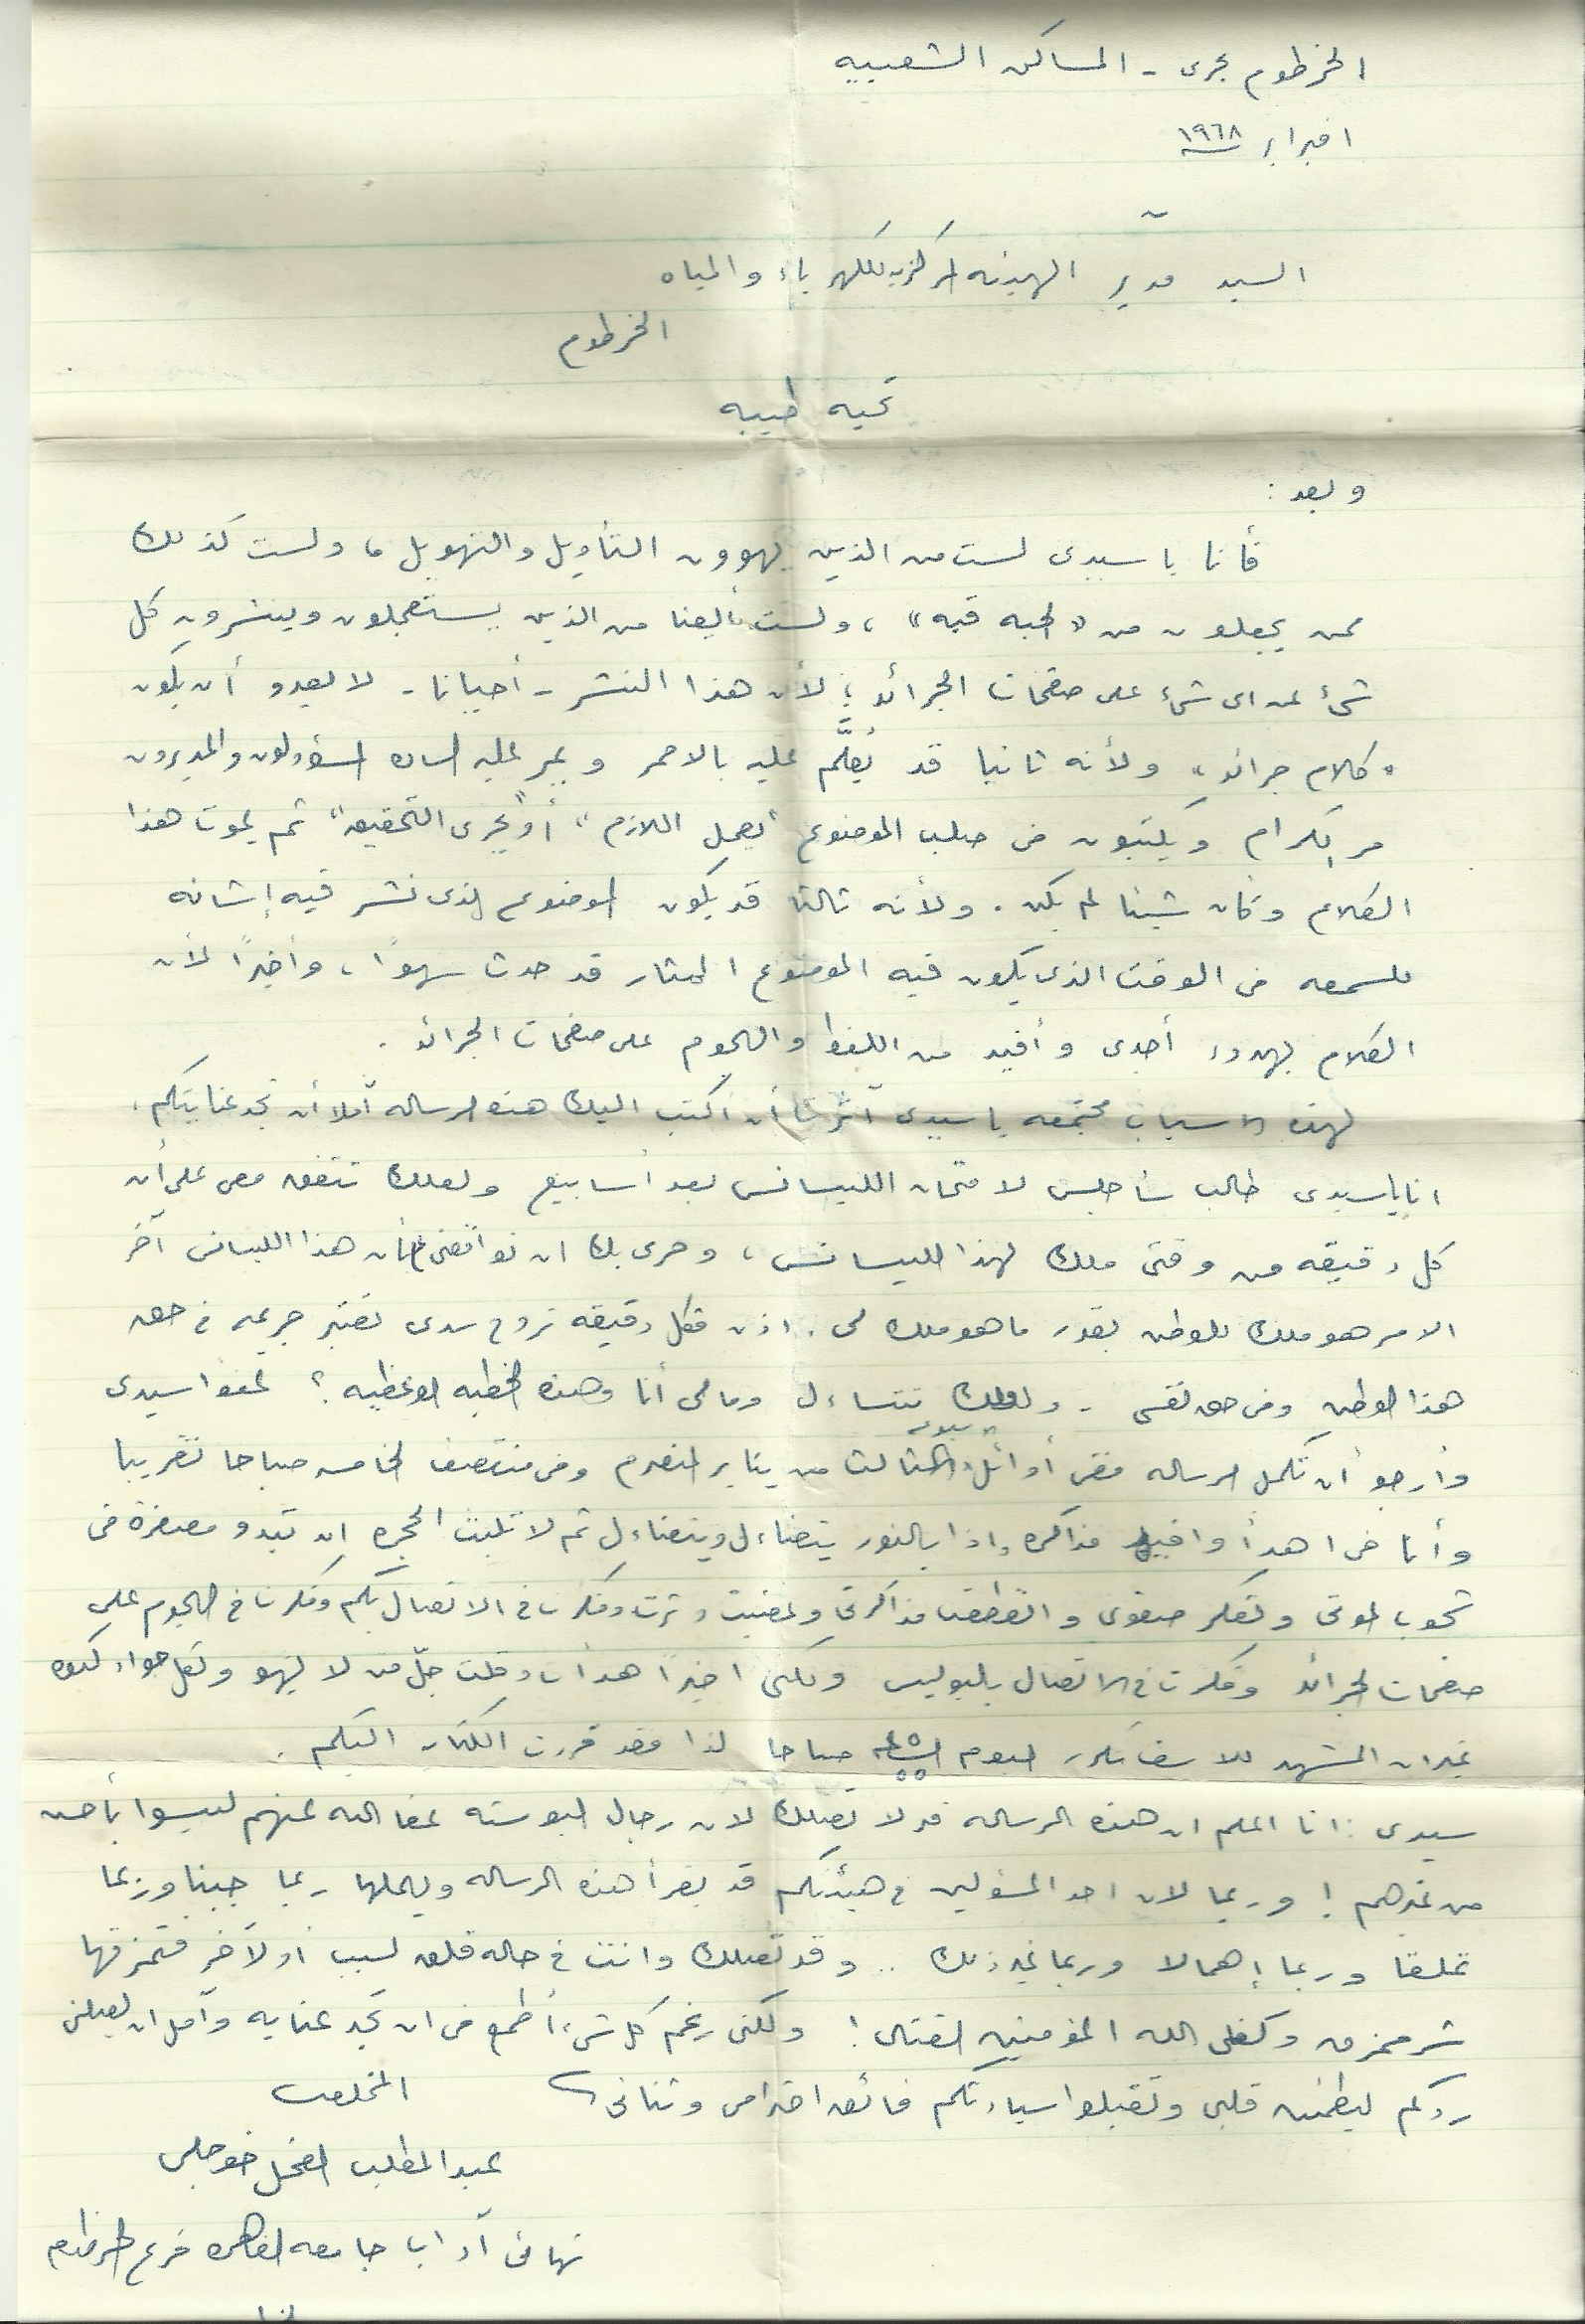 الخرطوم بحرى - المساكن الشعبيه
١ فبراير ١٩٦٨
السيد مدير الهيئه المركزيه للكهرباء والمياه
الخرطوم
تحيه طيبه
وبعد :
فأنا يا سيدى لست من الذين يهوون التأويل والتهويل ، ولست كذلك
ممن يجعلون من «الحبه قبه» ، ولست أيضا من الذين يستعجلون وينشرون كل
شئ عن اى شئ على صفحات الجرائد ؛ لأن هذا النشر - أحيانا - لا يعدو أن يكون
"كلام جرائد" ولأنه ثانيا قد يُعلَّم عليه بالاحمر و يمر عليه الساده المسؤولون والمديرون
مر الكرام ويكتبون فى صلب الموضوع "يعمل اللازم" أو "يجرى التحقيق" ثم يموت هذا
الكلام وكأن شيئا لم يكن . ولأنه ثالثا قد يكون الموضوع الذى نشر فيه إشانه
للسمعه فى الوقت الذى يكون فيه الموضوع المثار قد حدث سهوًا ، وأخيرًا لأن
الكلام بهدوء أجدى وأفيد من اللغط والهجوم على صفحات الجرائد .
لهذه الاسباب مجتمعه يا سيدى آثرت أن أكتب اليك هذه الرساله آملا أن تجد عنايتكم .
انا يا سيدى طالب سأجلس لامتحان الليسانس بعد أسابيع ولعلك تتفق معى على أن
كل دقيقه من وقتى ملك لهذا الليسانس ، وحرى بك ان توافقنى بأن هذا الليسانس آخر
الامر هو ملك للوطن بقدر ما هو ملك لى . اذن فكل دقيقه تروح سدى تعتبر جريمه فى حق
هذا الوطن وفى حق نفسى . ولعلك تتساءل ومالى أنا وهذه الخطبه الوعظيه ؟ عفوا سيدى
وأرجو أن تكمل الرساله ففى أوائل يوم الثالث من يناير المنصرم وفى منتصف الخامسه صباحا تقريبا
وأنا فى اهدأ وافيد مذاكره واذا بالنور يتضاءل ويتضاءل ثم لا تلبث الحجره ان تبدو مصفرة فى
شحوب الموتى وتعكر صفوى وانقطعت مذاكرتى وغضبت وثرت وفكرت فى الاتصال بكم وفكرت فى الهجوم على
صفحات الجرائد وفكرت فى الاتصال بالبوليس ولكنى اخيرًا هدأت وقلت جلّ من لا يسهو ولكل جواد كبوه
غير ان المشهد للاسف تكرر اليوم صباحا لذا فقد قررت الكتابه اليكم .
سيدى : انا اعلم ان هذه الرساله قد لا تصلك لان رجال البوسته عفا الله عنهم ليسوا بأحسن
من غيرهم ! وربما لان احد المسئولين فى هيئتكم قد يقرأ هذه الرساله ويهملها ربما جبنا وربما
تملقا وربما إهمالا وربما غير ذلك .. وقد تصلك وانت فى حاله قلق لسبب او لآخر فتمزقها
شر ممزق وكفى الله المؤمنين القتال ! ولكنى رغم كل شئ أطمع فى ان تجد عنايه وآمل ان يصلنى
ردكم ليطمئن قلبى وتقبلوا سيادتكم فائق احترامى وثنائى ،
المخلص
عبدالمطلب الفحل خوجلى
نهائى آداب جامعه القاهره فرع الخرطوم